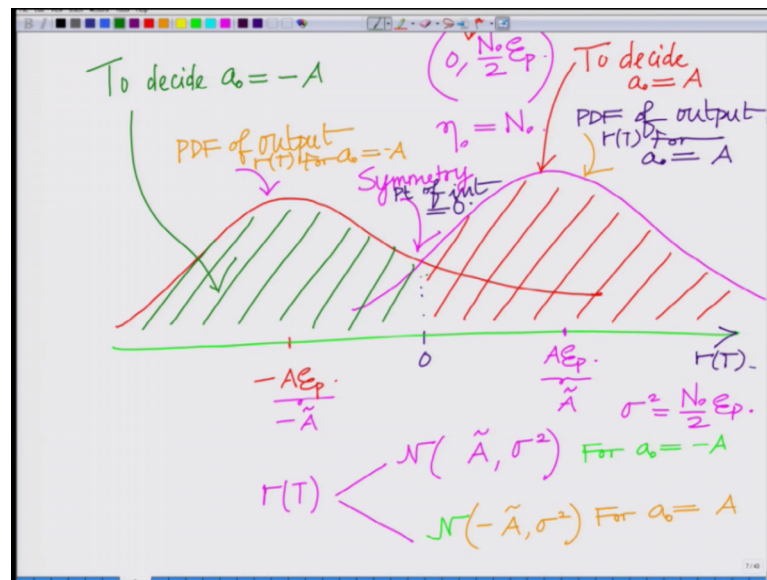 (0, N₀/2 Ɛp)
To decide a₀ = -A
To decide
a₀ = A
η₀ = N₀.
PDF of output
r(T) For a₀ = -A
PDF of output
r(T) For
a₀ = A
Symmetry
Pt of int
= 0.
-AƐp.
-Ã
0
AƐp.
Ã
r(T)
σ² = N₀/2 Ɛp.
r(T)
N( Ã, σ²) For a₀ = -A
N(-Ã, σ²) For a₀ = A
7 / 43